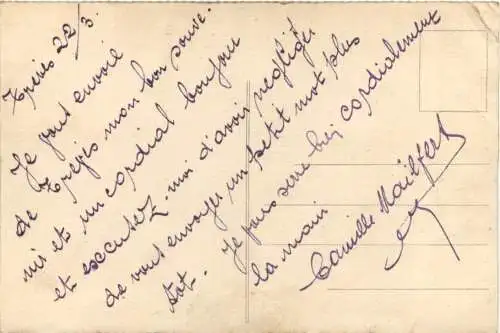 Trévis 22/3.
Je vous envoie
de Trégis mon bon souve-
nir et un cordial bonjour
et excusez-moi d'avoir négligé
de vous envoyer un petit mot plus
tôt. Je vous serre bien cordialement
la main
Camille